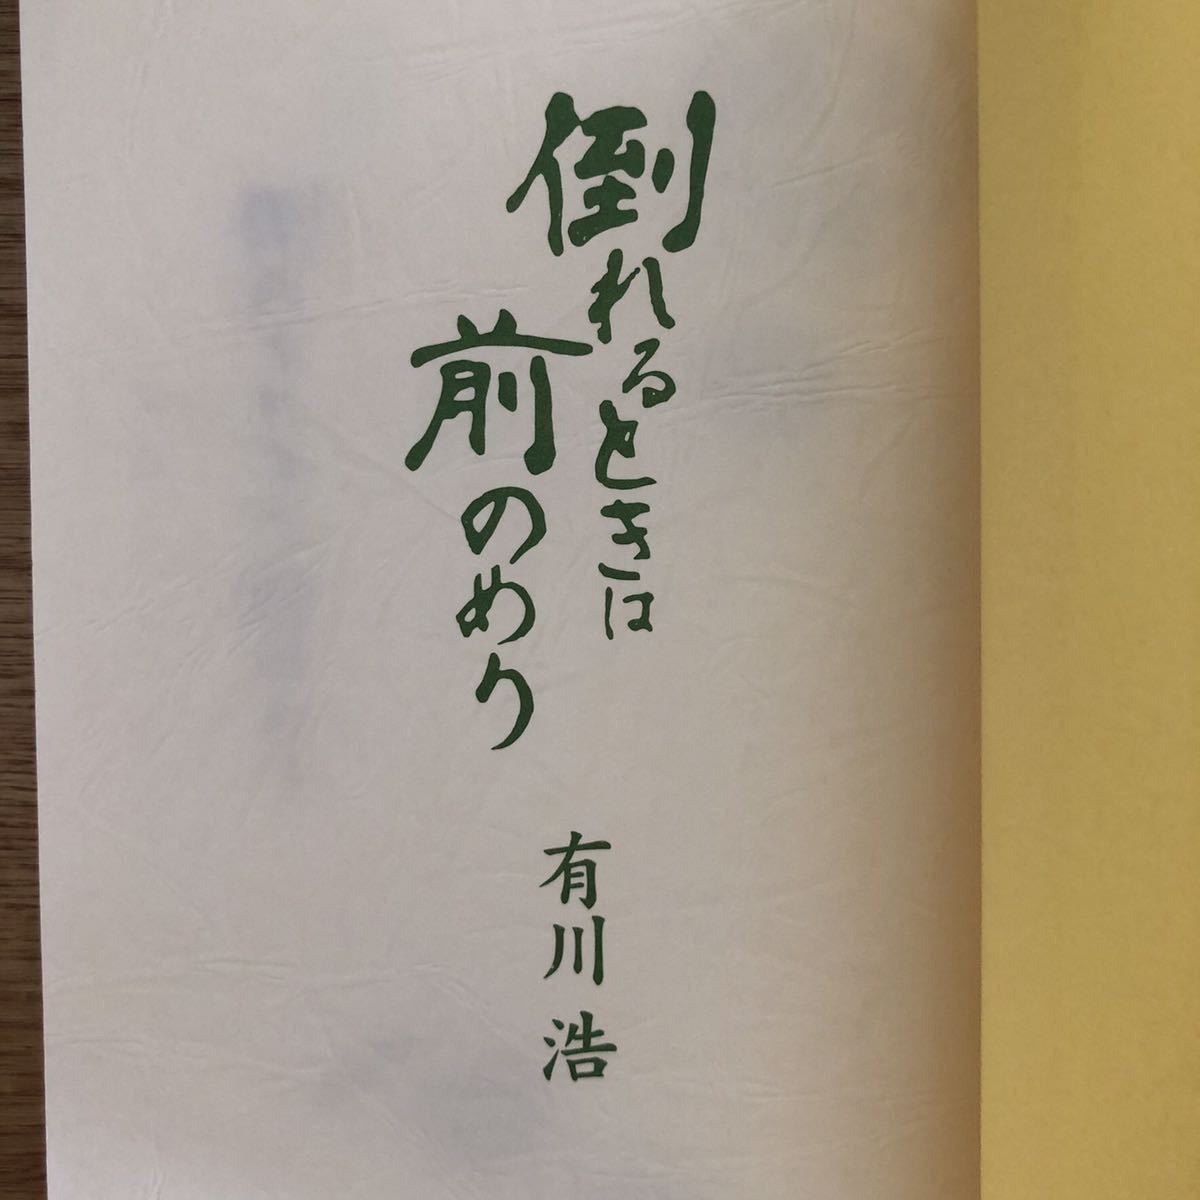 倒れるときは
前のめり
有川 浩